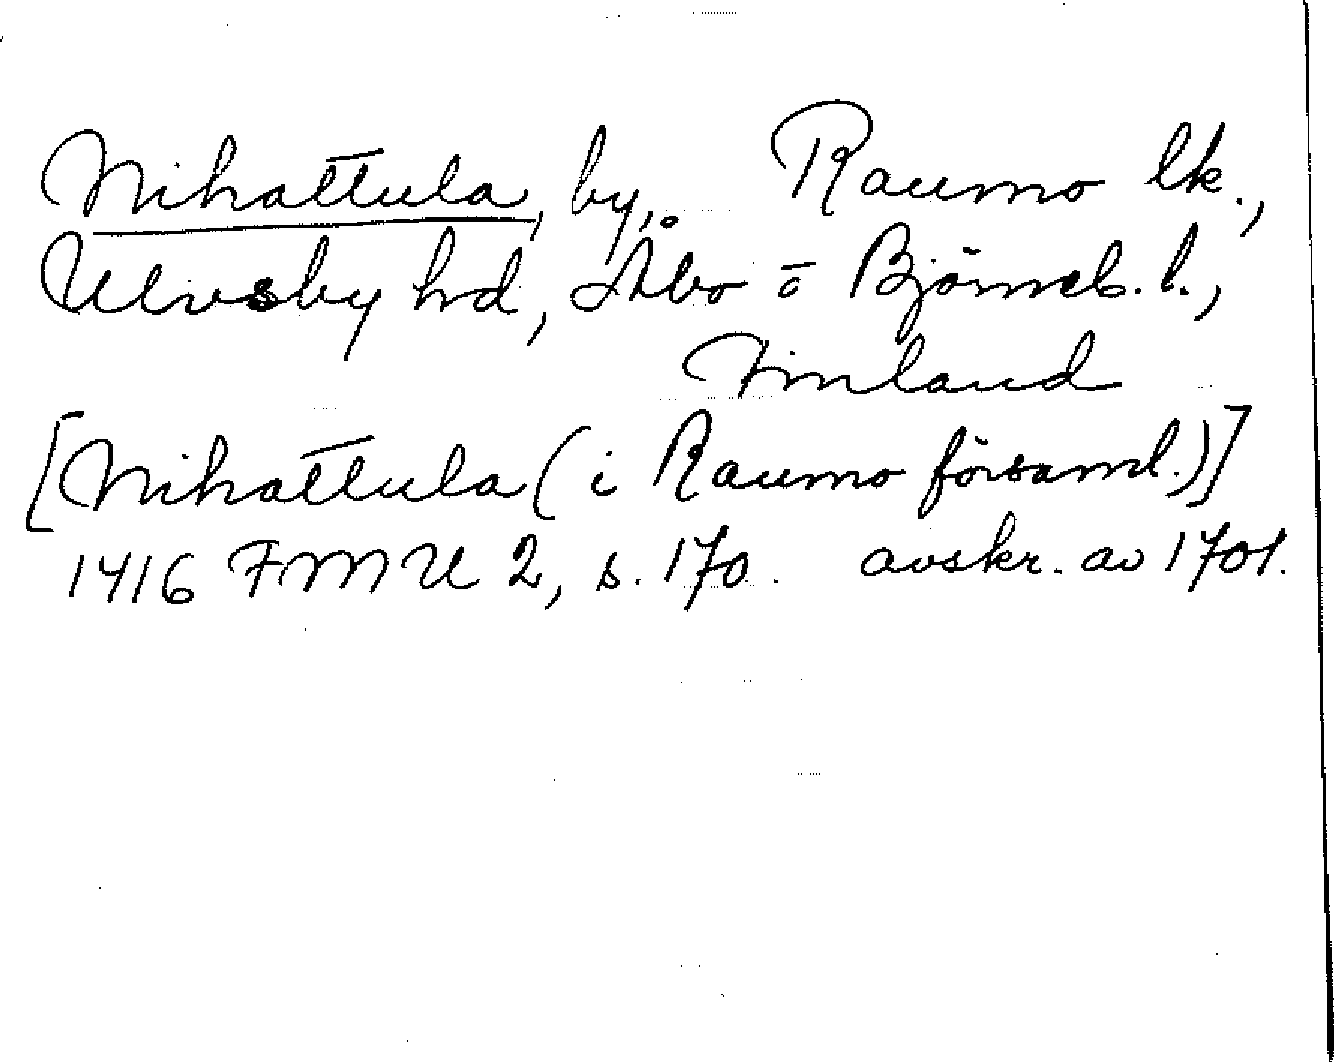 Nihattula, by, Raumo lk.,
Ulvsby hd, Åbo o Björneb. l.,
Finland
[Nihattula (i Raumo församl.)]
1416 FMU 2, s. 170. avskr. av 1701.